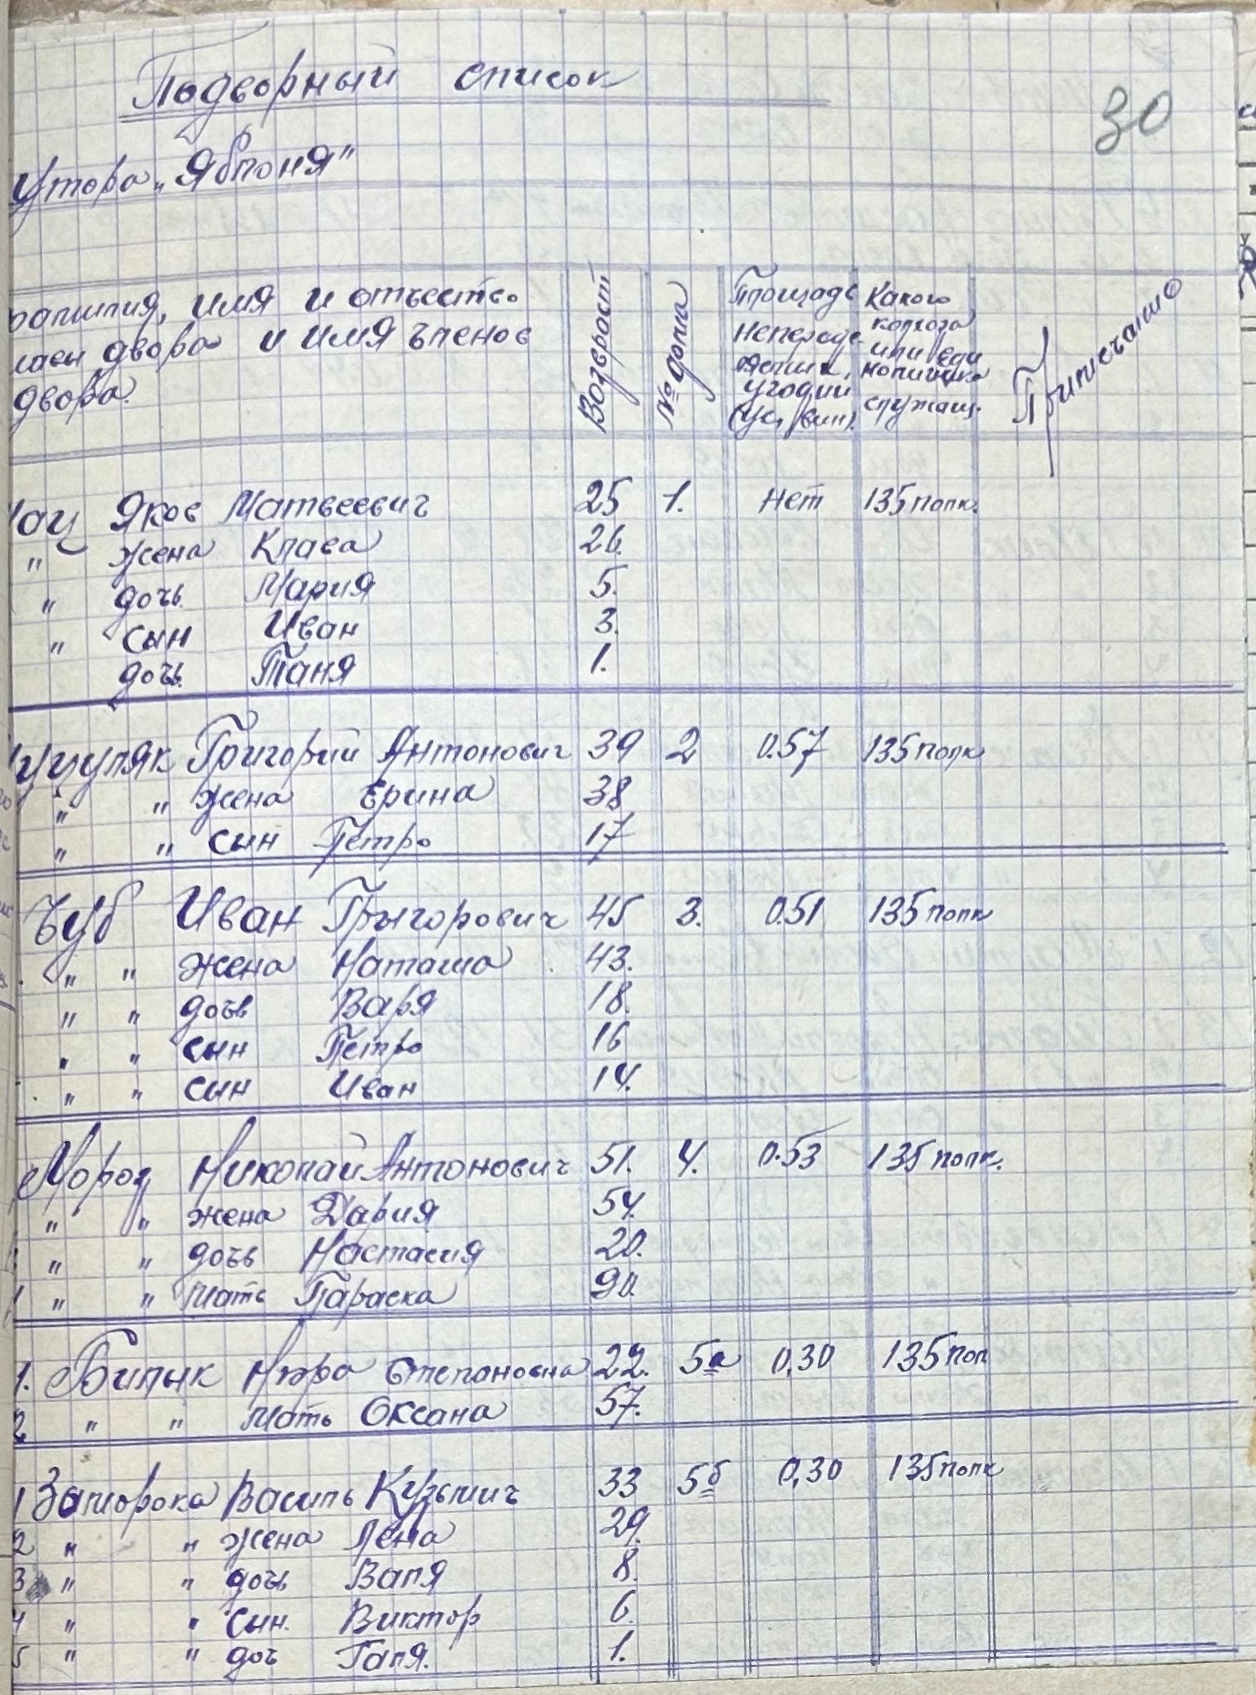 Подворный список
30
утора „Японя"
фамилия, имя и отчество
главы двора и имя членов
двора.
Возвраст
№ дома
Площадь
угодий
(ус, вин).
Какого
колхоза
или еди
служащ.
Примечание
Яков Матвеевич 25 1. Нет 135 полк.
" жена Клава 26.
" дочь Мария 5.
" сын Иван 3.
дочь Таня 1.
Григорий Антонович 39 2 0.57 135 полк
" " жена Ерина 38
" " сын Петро 17
Чуб Иван Грыгорович 45 3. 0.51 135 полк
" " жена Наташа 43.
" " дочь Варя 18.
" " сын Петро 16
" " сын Иван 14.
Мороз Николай Антонович 51. 4. 0.53 135 полк.
" " жена Дария 54.
" " дочь Настасия 20.
" " мать Параска 90.
1. Билык Нюра Степановна 22. 5а 0,30 135 пол
2 " " мать Оксана 57.
1 Заторока Василь Кузьмич 33 5б 0,30 135 полк
2 " " жена Лена 29.
3 " " дочь Валя 8.
4 " " сын. Виктор 6.
5 " " доч Галя. 1.